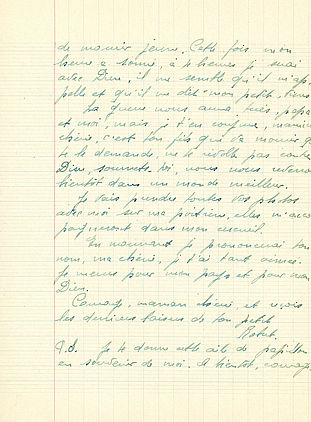 de mourir jeune. Cette fois mon
heure a sonné, à 4 heures je serai
avec Dieu, il me semble qu'il m'ap-
pelle et qu'il me dit "mon petit, viens
La guerre nous aura tués, papa
et moi, mais je t'en conjure, maman
chérie, c'est ton fils qui va mourir q
te le demande, ne te révolte pas contre
Dieu, soumets toi, nous nous
bientôt dans un monde meilleur.
Je vais prendre toutes vos photos
avec moi sur ma poitrine, elles m'accom
pagneront dans mon cercueil.
En mourant je prononcerai ton
nom, ma chérie, je t'ai tant aimée.
Je meurs pour mon pays et pour mon
Dieu.
Courage, maman chérie et reçois
les derniers baisers de ton petit
Robert.
P.S. Je te donne cette aile de papillon
en souvenir de moi. A bientôt, courage